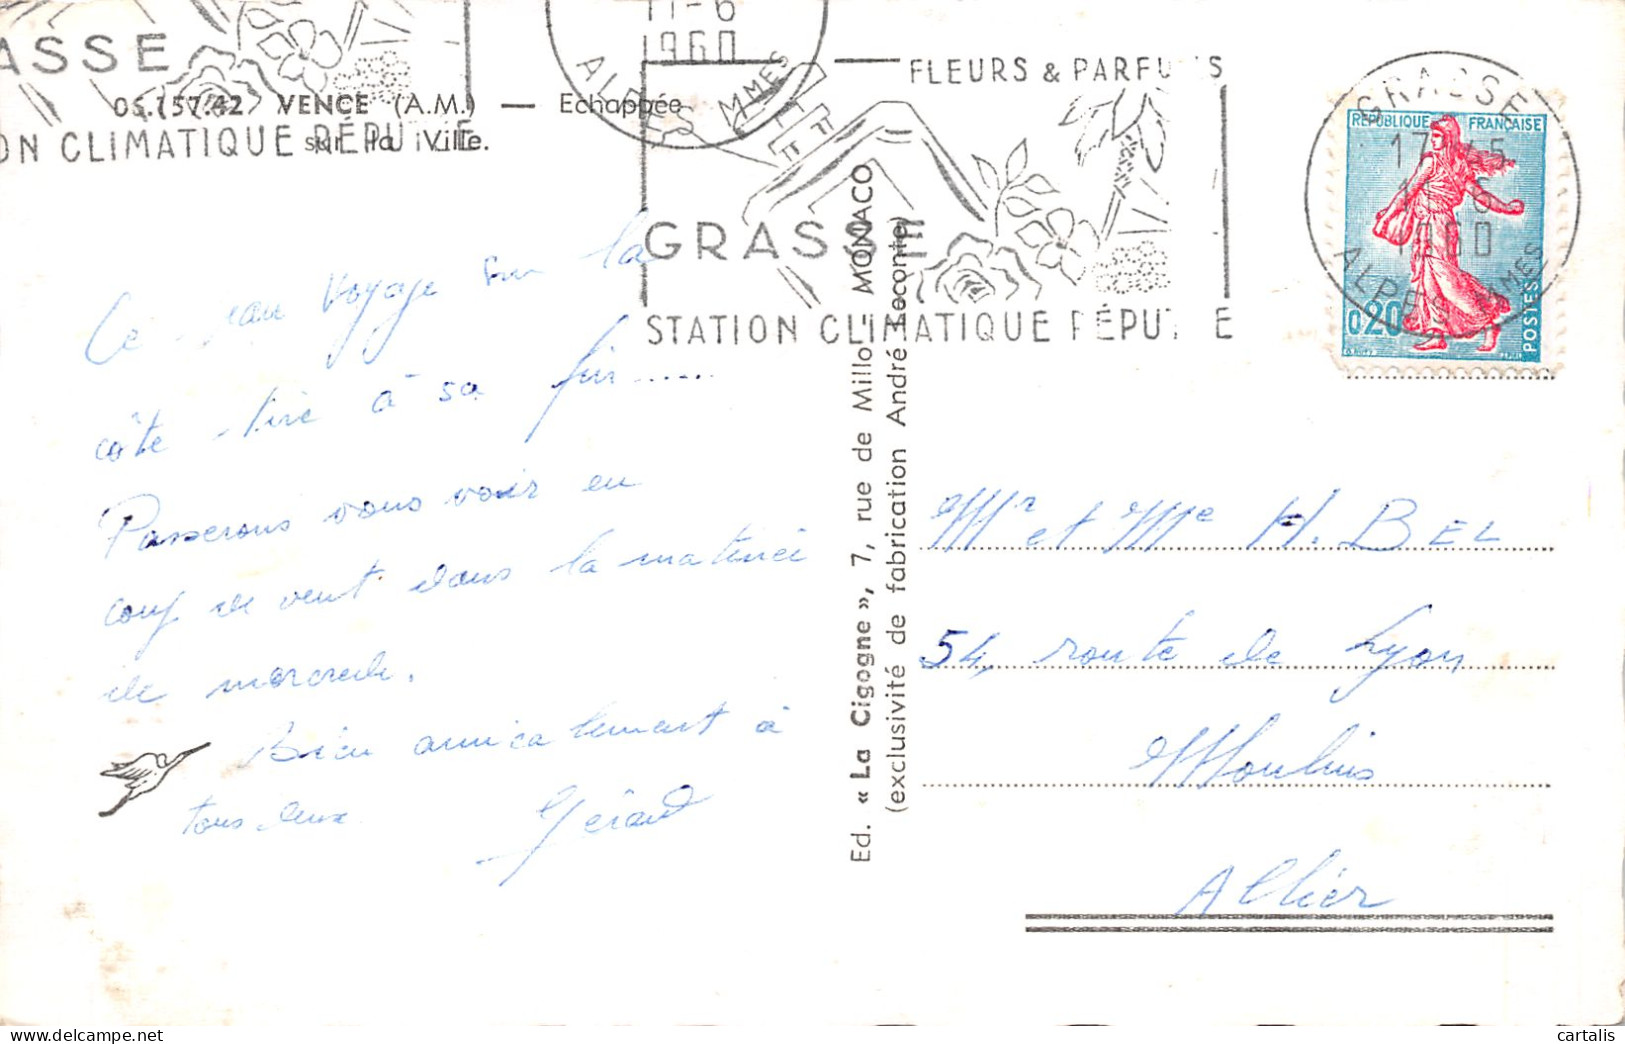 ASSE
ON CLIMATIQUE RÉPUTÉE
06.157.42 VENCE (A.M.) — Echappée
sur la Ville.
11-6
1960
ALPES MMES
FLEURS & PARFUMS
GRASSE
STATION CLIMATIQUE RÉPUTÉE
GRASSE
17 45
1960
ALPES MMES
RÉPUBLIQUE FRANÇAISE
0,20
POSTES
Ce beau voyage sur la
côte tire à sa fin ......
Passerons vous voir en
coup de vent dans la matinée
de mercredi.
Bien amicalement à
tous deux
Gérard
Ed. « La Cigogne », 7, rue de Millo - MONACO
(exclusivité de fabrication André Leconte)
Mr et Me H. BEL
54, route de Lyon
Moulins
Allier
cartalis sur www.delcampe.net